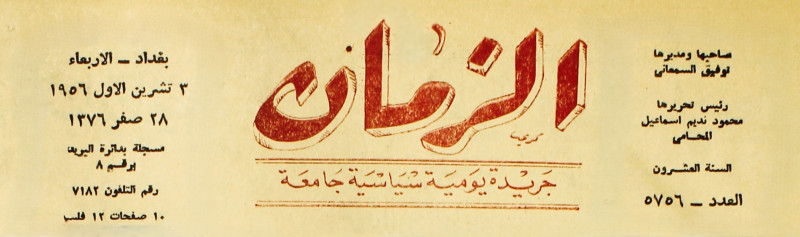 صاحبها ومديرها
توفيق السمعاني
رئيس تحريرها
محمود نديم اسماعيل
المحامي
السنة العشرون
العدد ـ ٥٧٥٦
الزمان
جريدة يومية سياسية جامعة
بغداد ـ الاربعاء
٣ تشرين الاول ١٩٥٦
٢٨ صفر ١٣٧٦
مسجلة بدائرة البريد
برقم ٨
رقم التلفون ٧١٨٢
١٠ صفحات ١٢ فلس